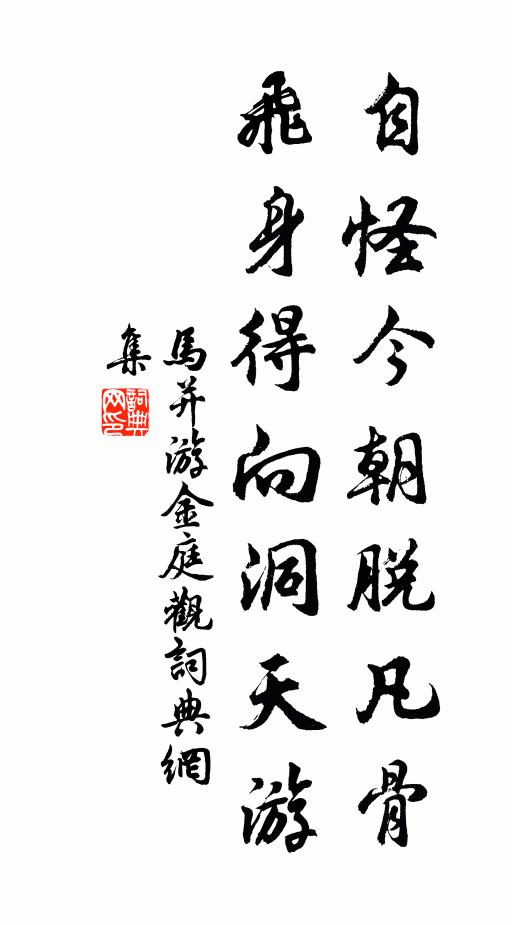 自怪今朝脱凡骨
飛身得向洞天游
馬并游金庭觀詞典網
集
詞典
网印